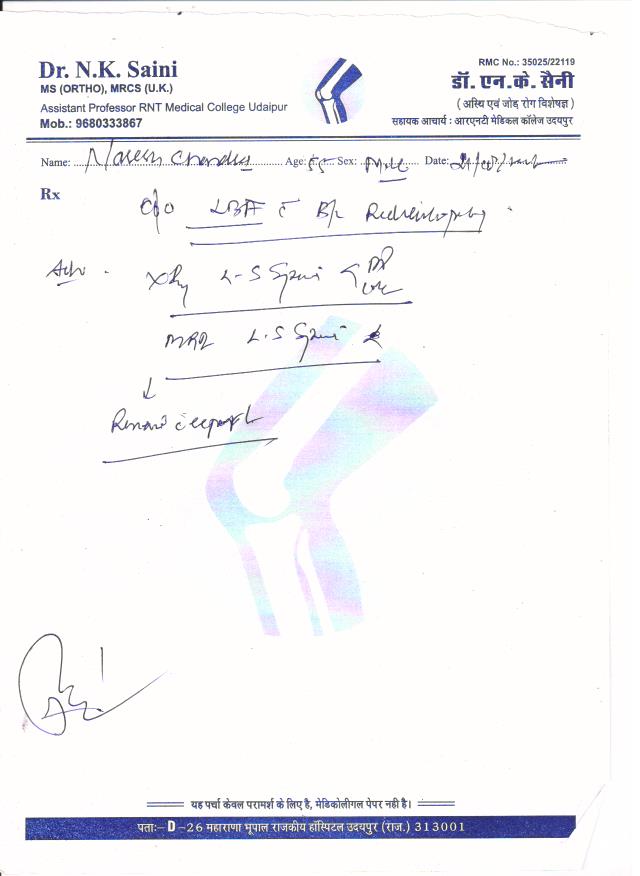 Dr. N.K. Saini
MS (ORTHO), MRCS (U.K.)
Assistant Professor RNT Medical College Udaipur
Mob.: 9680333867
RMC No.: 35025/22119
डॉ. एन.के. सैनी
( अस्थि एवं जोड़ रोग विशेषज्ञ )
सहायक आचार्य : आरएनटी मेडिकल कॉलेज उदयपुर
Name: Naresh Chandra Age: 55 Sex: Male Date:
Rx
C/o LBA c̄ B/L Radiculopathy
Adv. XRay L-S Spine AP
MRI L.S Spine
↓
Review c̄ report
यह पर्चा केवल परामर्श के लिए है, मेडिकोलीगल पेपर नही है।
पताः– D – 26 महाराणा भूपाल राजकीय हॉस्पिटल उदयपुर (राज.) 313001